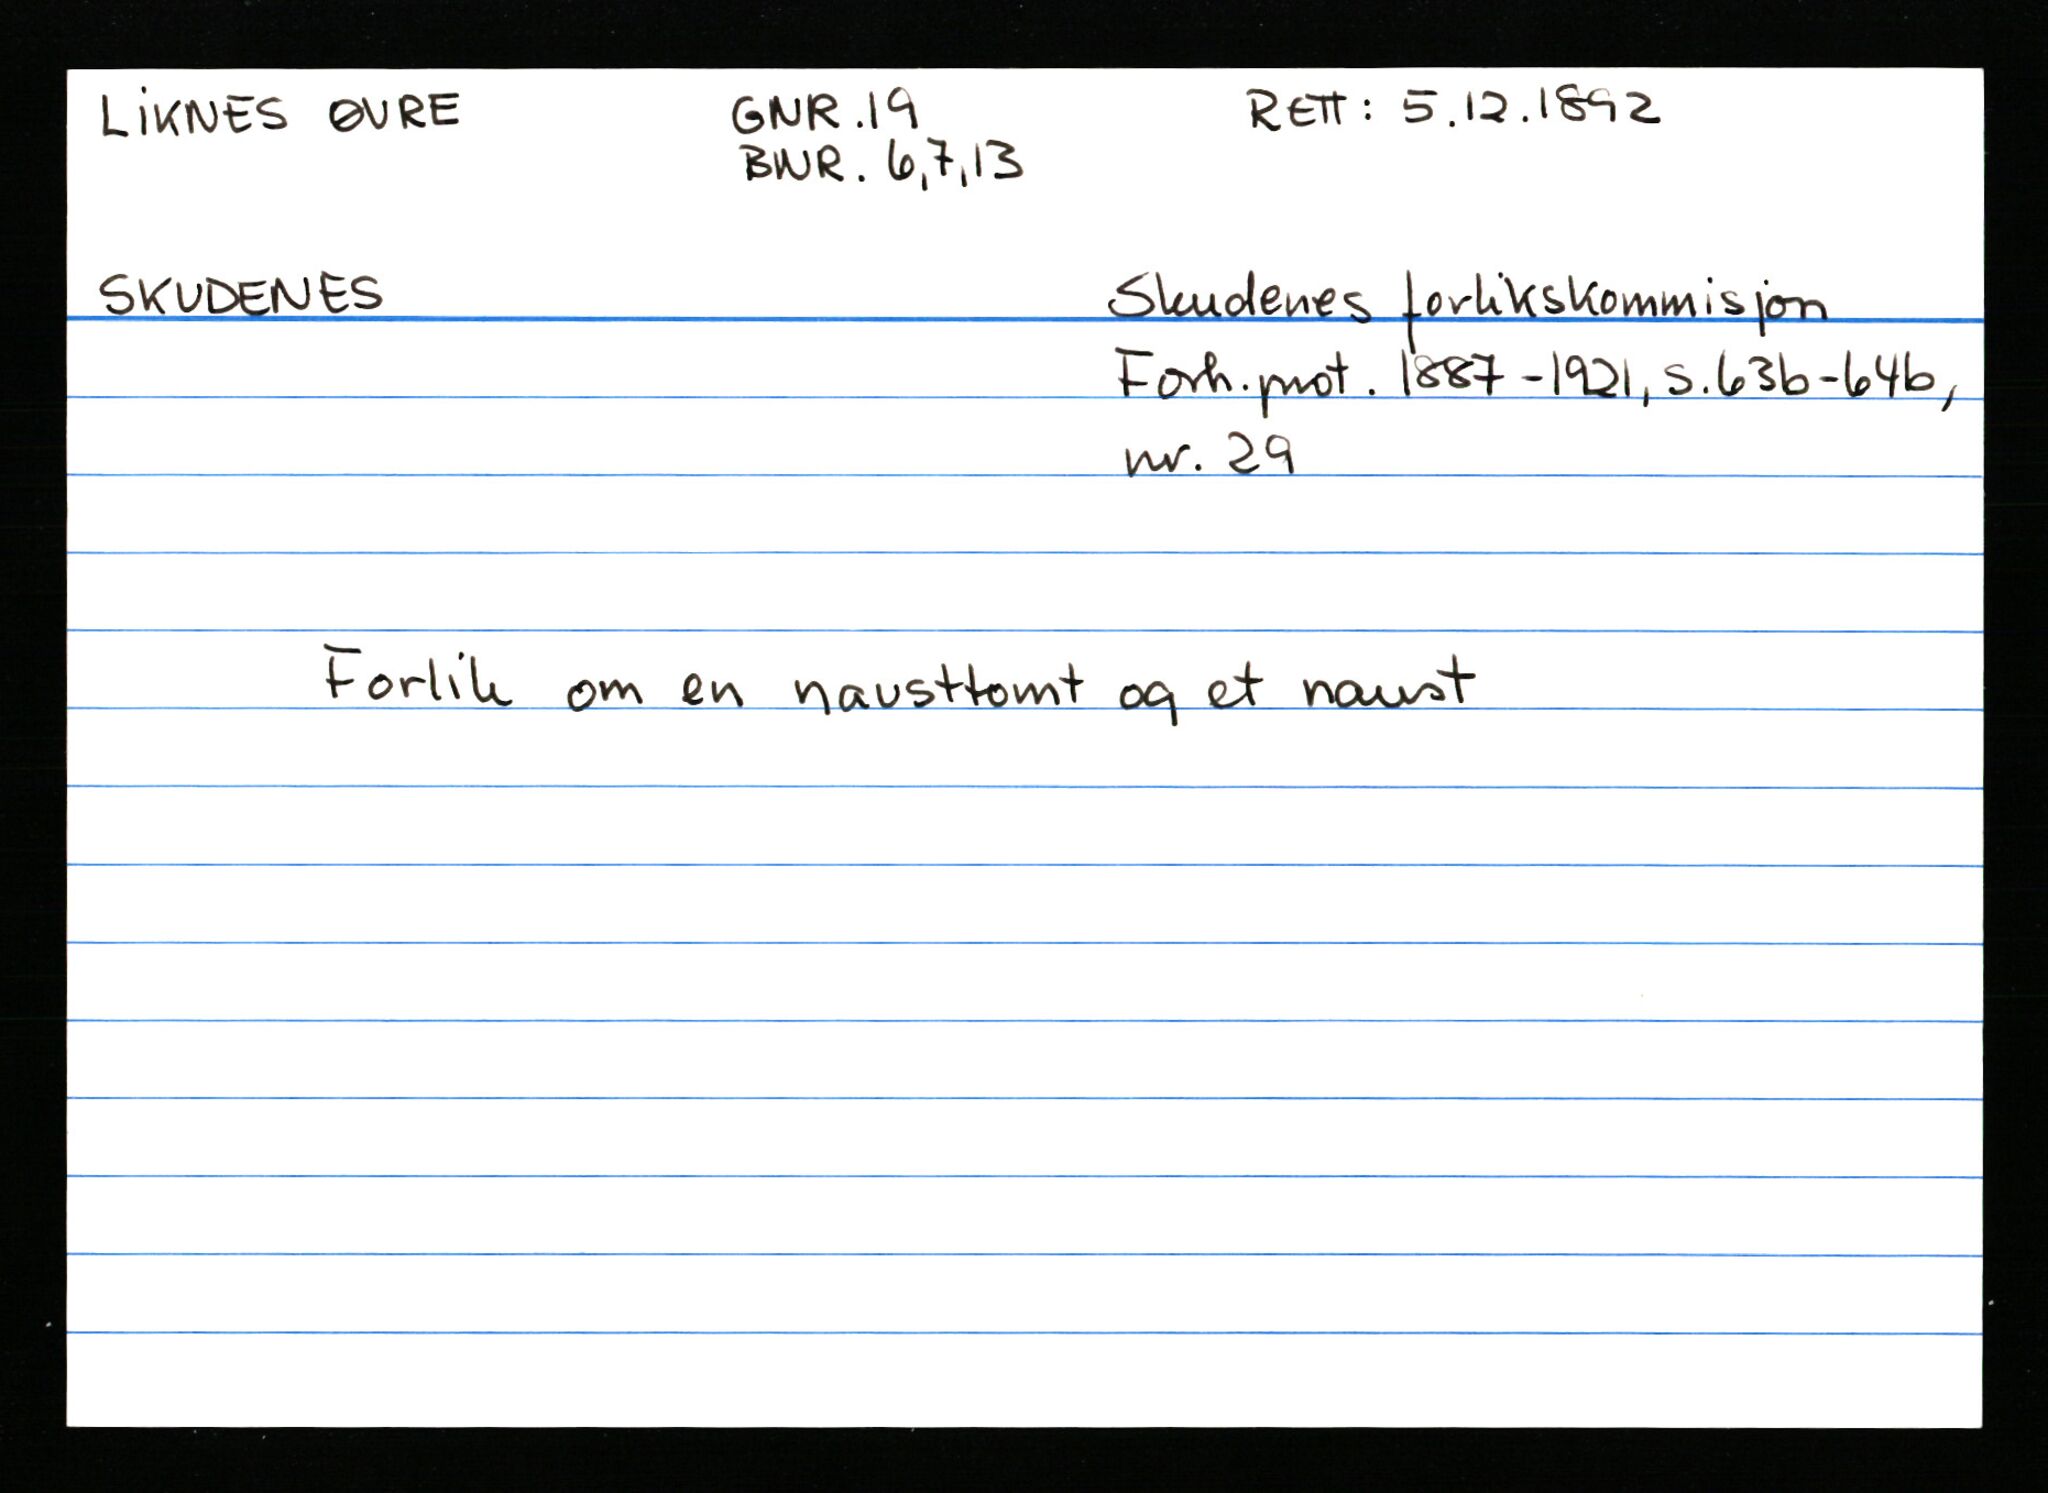 LIKNES ØVRE GNR.19 RETT: 5.12.1892
BNR. 6,7,13
SKUDENES Skudenes forlikskommisjon
Forh.prot. 1887-1921, s.63b-64b,
nr. 29
Forlik om en nausttomt og et naust